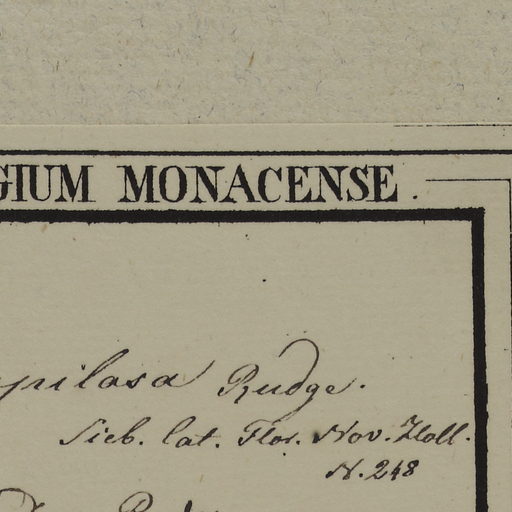 GIUM MONACENSE.
pilosa Rudge.
Sieb. lat. Flor. Nov. Holl.
N. 248